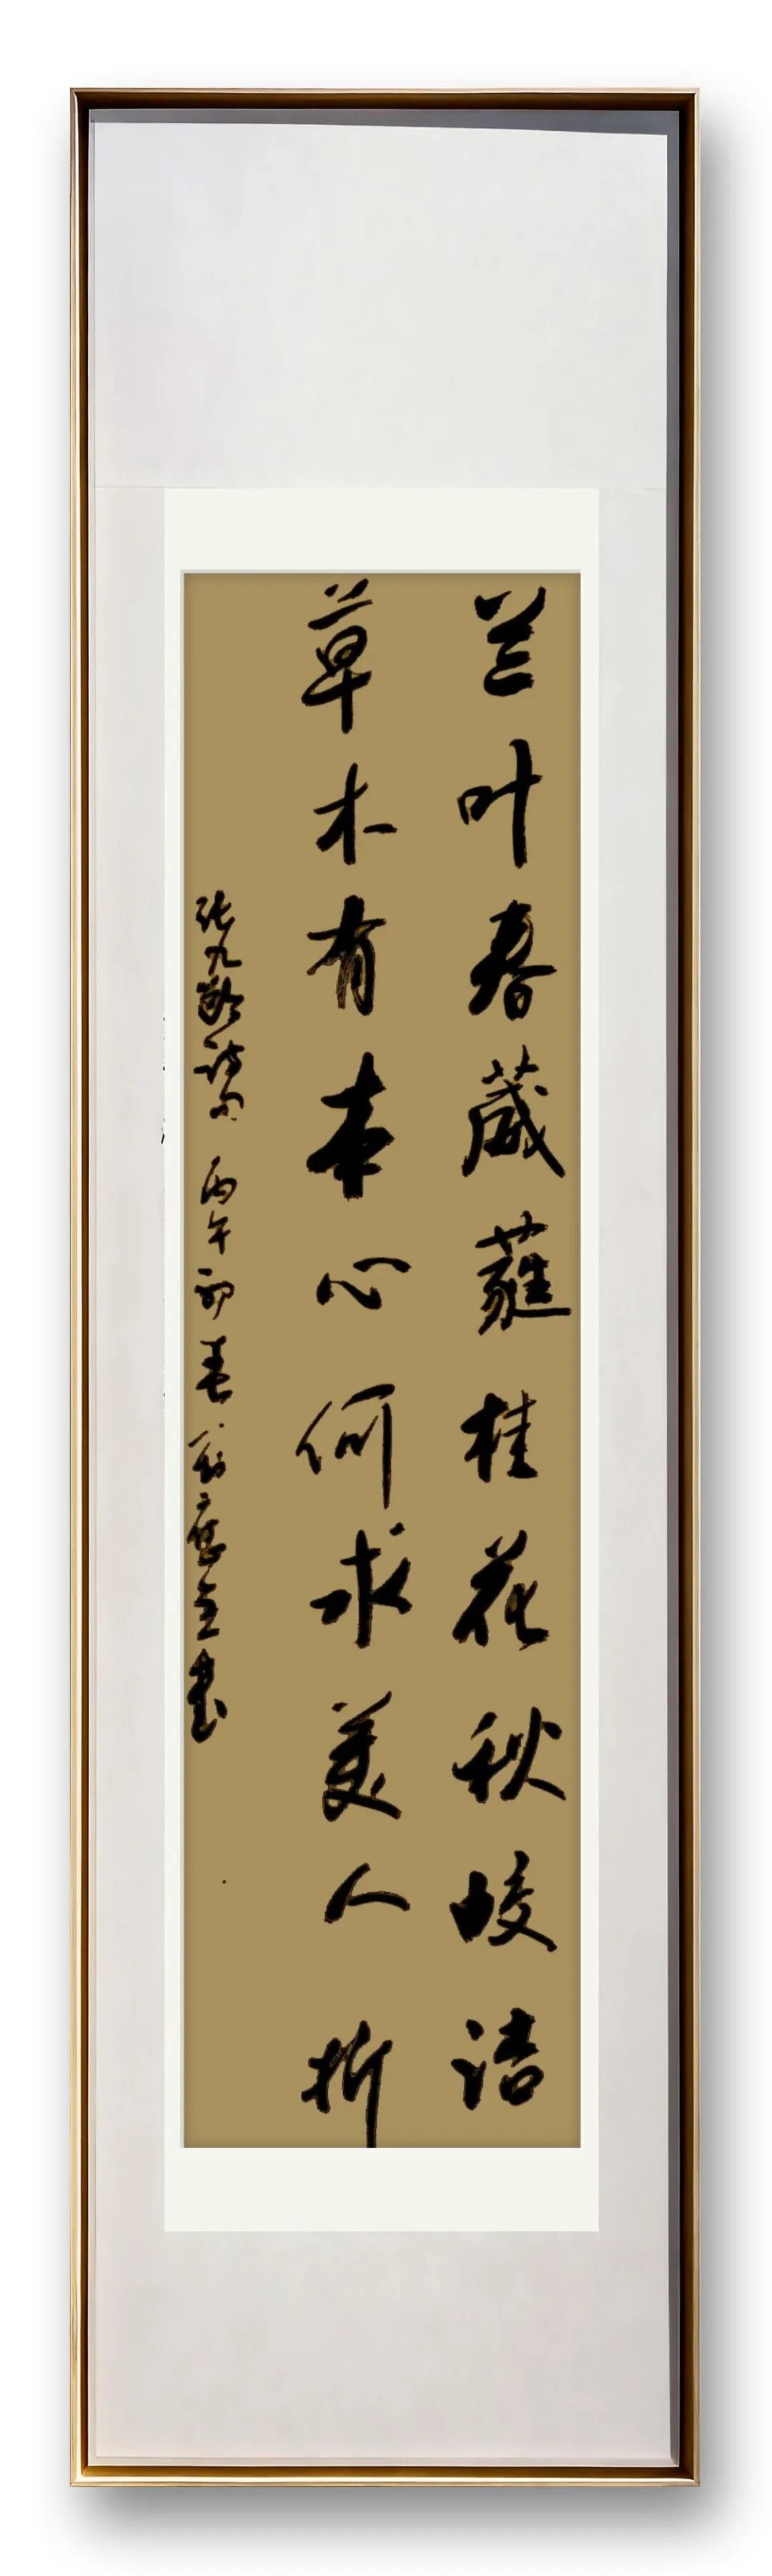 兰叶春葳蕤桂花秋皎洁
草木有本心何求美人折
张九龄诗句 丙午初春 书